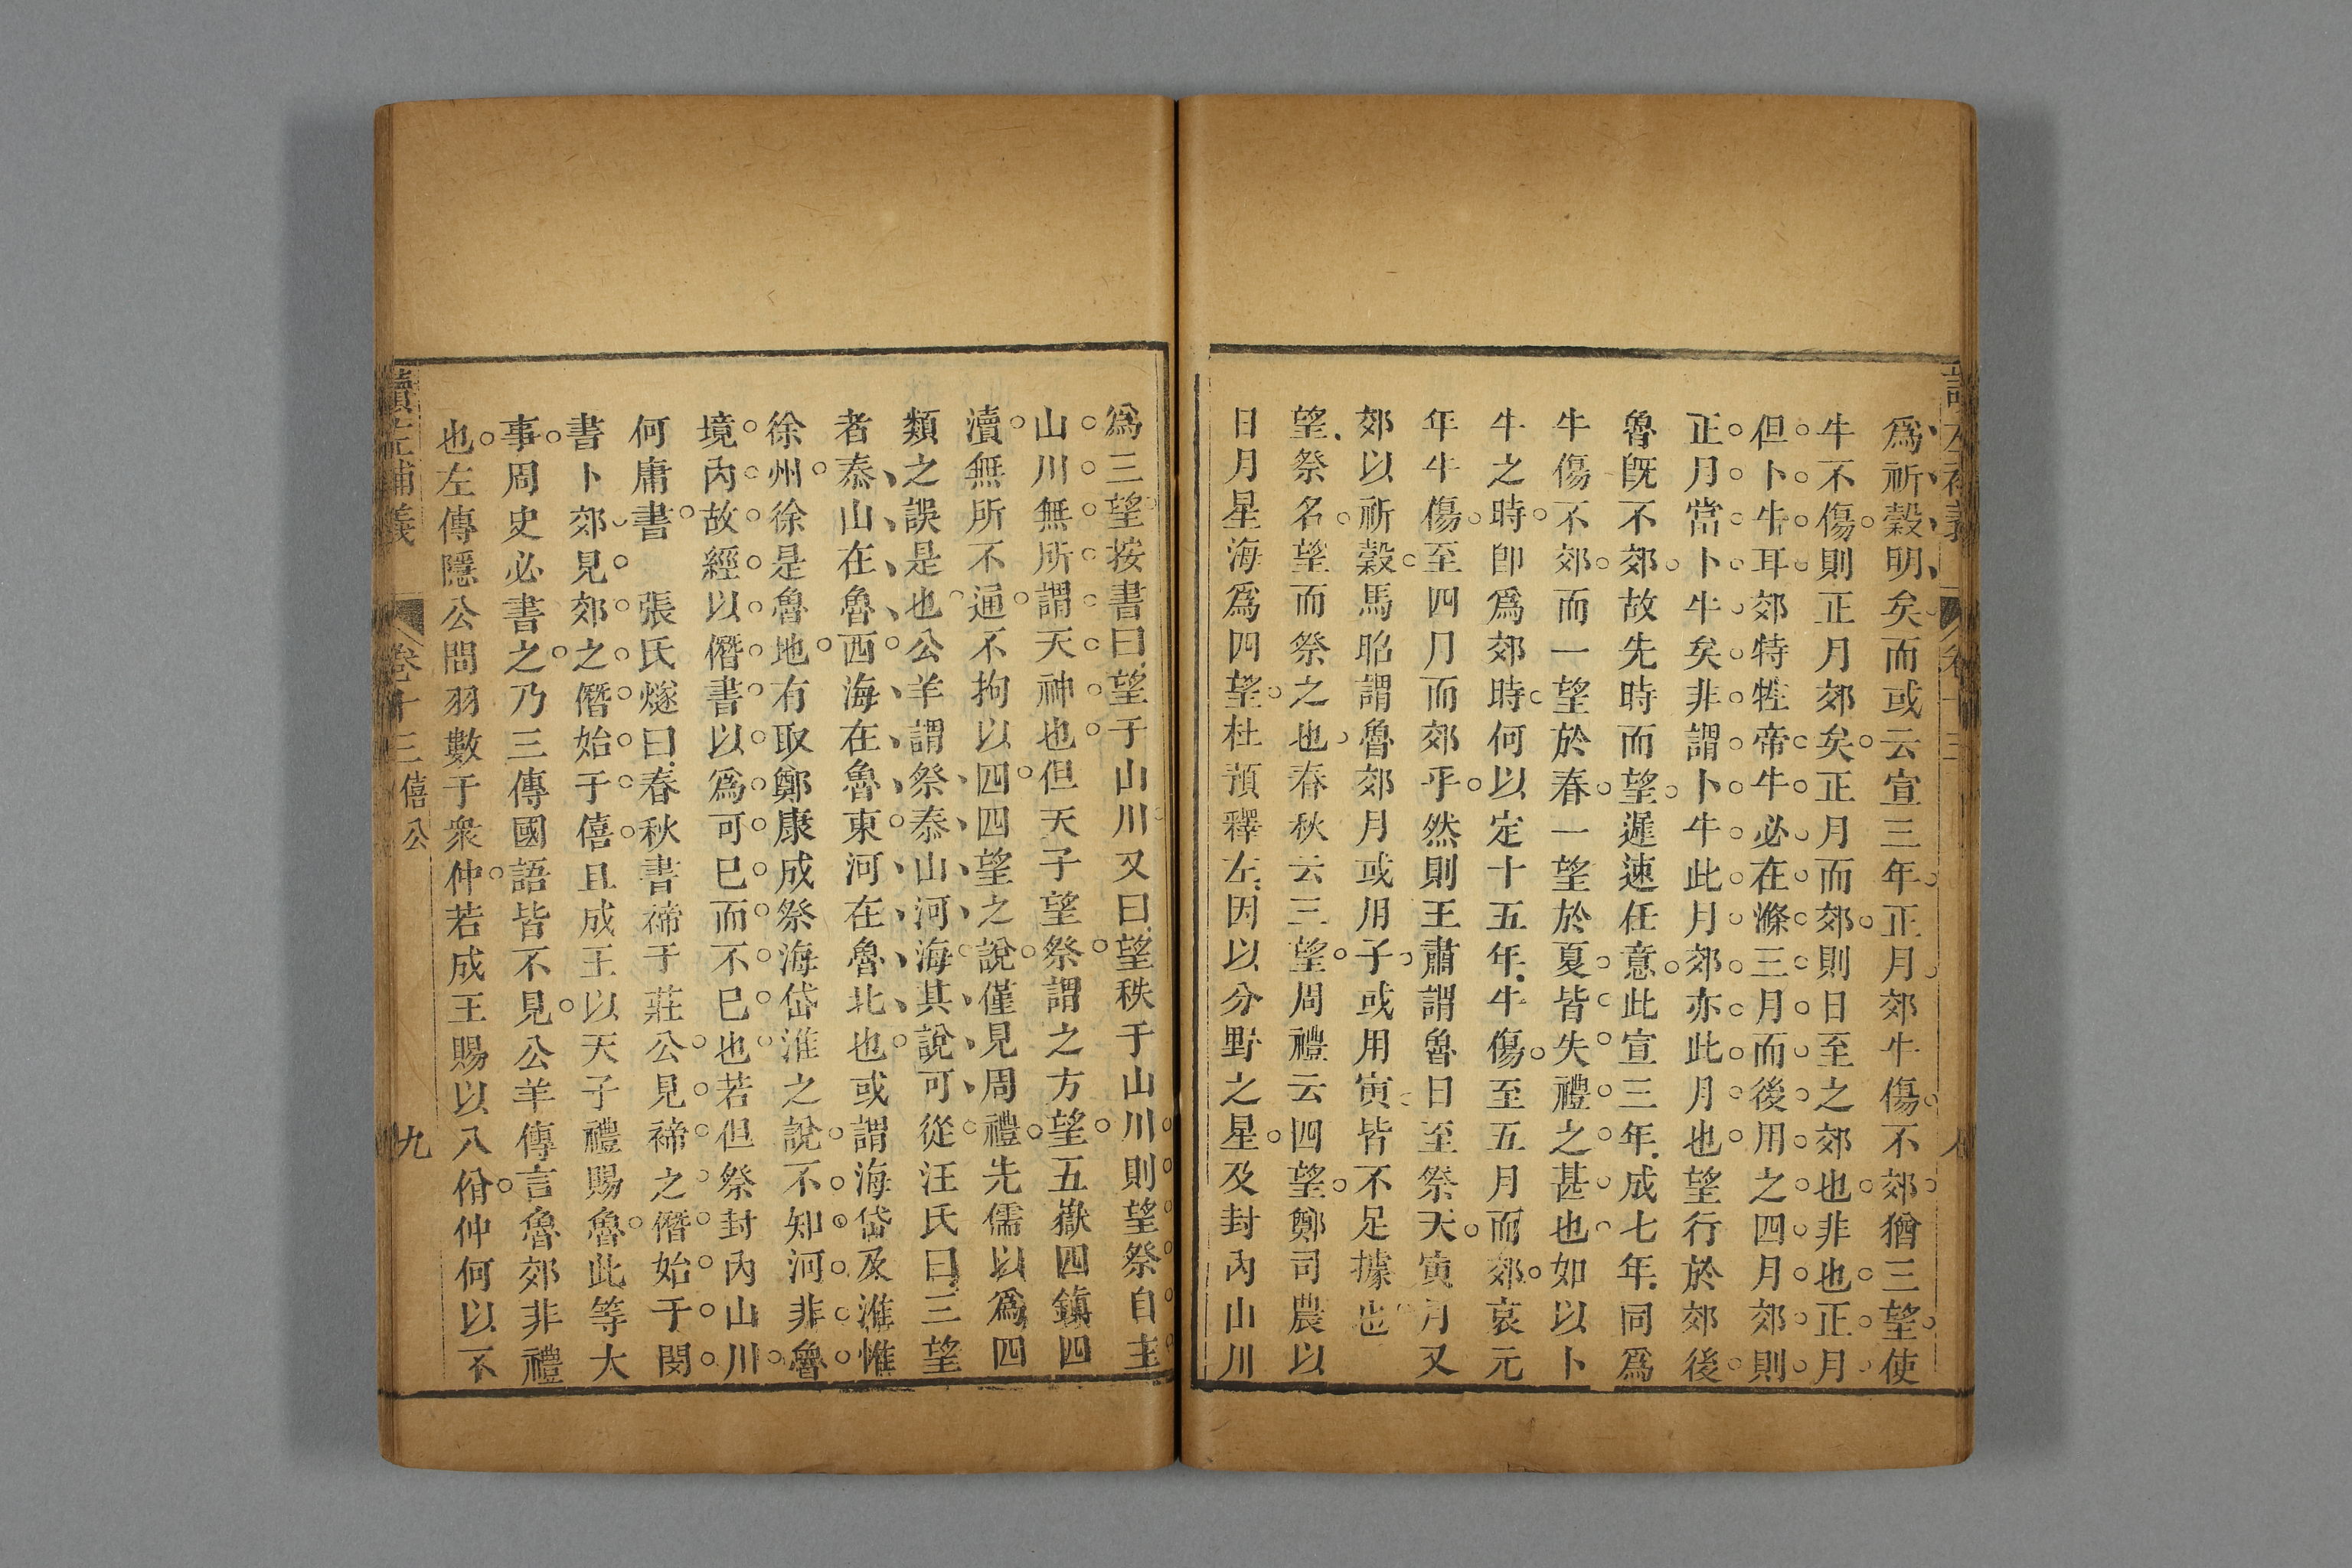 爲祈穀明矣而或云宣三年正月郊牛傷不郊猶三望使
牛不傷則正月郊矣正月而郊則日至之郊也非也正月
但卜牛耳郊特牲帝牛必在滌三月而後用之四月郊則
正月當卜牛矣非謂卜牛此月郊亦此月也望行於郊後
魯旣不郊故先時而望遲速任意此宣三年成七年同爲
牛傷不郊而一望於春一望於夏皆失禮之甚也如以卜
牛之時卽爲郊時何以定十五年牛傷至五月而郊哀元
年牛傷至四月而郊乎然則王肅謂魯日至祭天寅月又
郊以祈穀馬昭謂魯郊月或用子或用寅皆不足據也
望祭名望而祭之也春秋云三望周禮云四望鄭司農以
日月星海爲四望杜預釋左因以分野之星及封內山川
爲三望按書曰望于山川又曰望秩于山川則望祭自主
山川無所謂天神也但天子望祭謂之方望五嶽四鎮四
瀆無所不通不拘以四四望之說僅見周禮先儒以爲四
類之誤是也公羊謂祭泰山河海其說可從汪氏曰三望
者泰山在魯西海在魯東河在魯北也或謂海岱及淮惟
徐州徐是魯地有取鄭康成祭海岱淮之說不知河非魯
境內故經以僭書以爲可已而不已也若但祭封內山川
何庸書　張氏燧曰春秋書禘于莊公見禘之僭始于閔
書卜郊見郊之僭始于僖且成王以天子禮賜魯此等大
事周史必書之乃三傳國語皆不見公羊傳言魯郊非禮
也左傳隱公問羽數于衆仲若成王賜以八佾仲何以不
讀左補義　卷十三　僖公　九